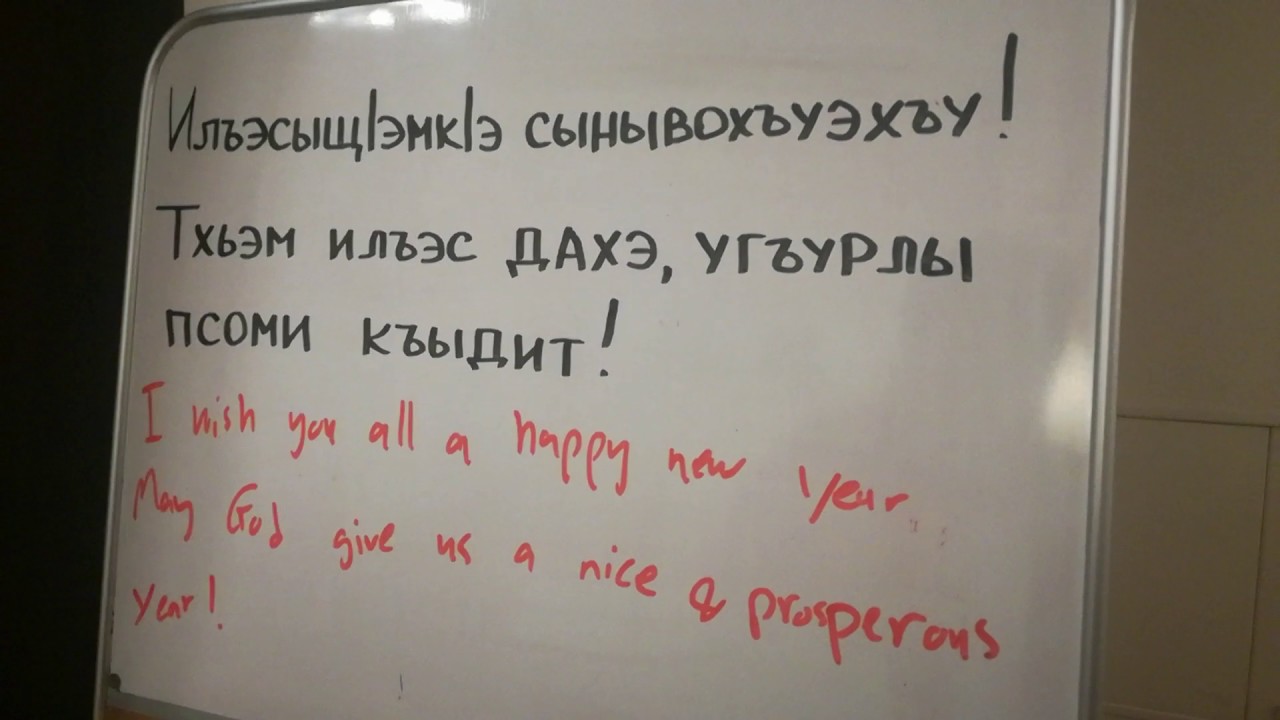 ИлъэсыщӀэмкӀэ сынывохъуэхъу!
Тхьэм илъэс ДАХЭ, УГЪУРЛЫ
псоми къыдит!
I wish you all a happy new year.
May God give us a nice & prosperous
year!